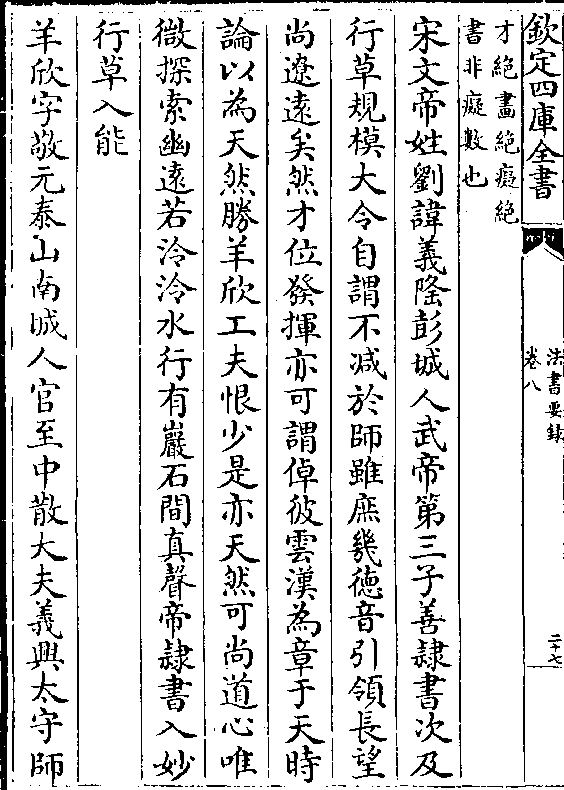 欽定四庫全書
法書要錄
卷八
二十七
才絶畫絶癡絶
書非癡數也
宋文帝姓劉諱義隆彭城人武帝第三子善隷書次及
行草規模大令自謂不減於師雖庶幾徳音引領長望
尚遼遠矣然才位發揮亦可謂倬彼雲漢為章于天時
論以為天然勝羊欣工夫恨少是亦天然可尚道心唯
微探索幽逺若泠泠水行有巖石間真聲帝隷書入妙
行草入能
羊欣字敬元泰山南城人官至中散大夫義興太守師